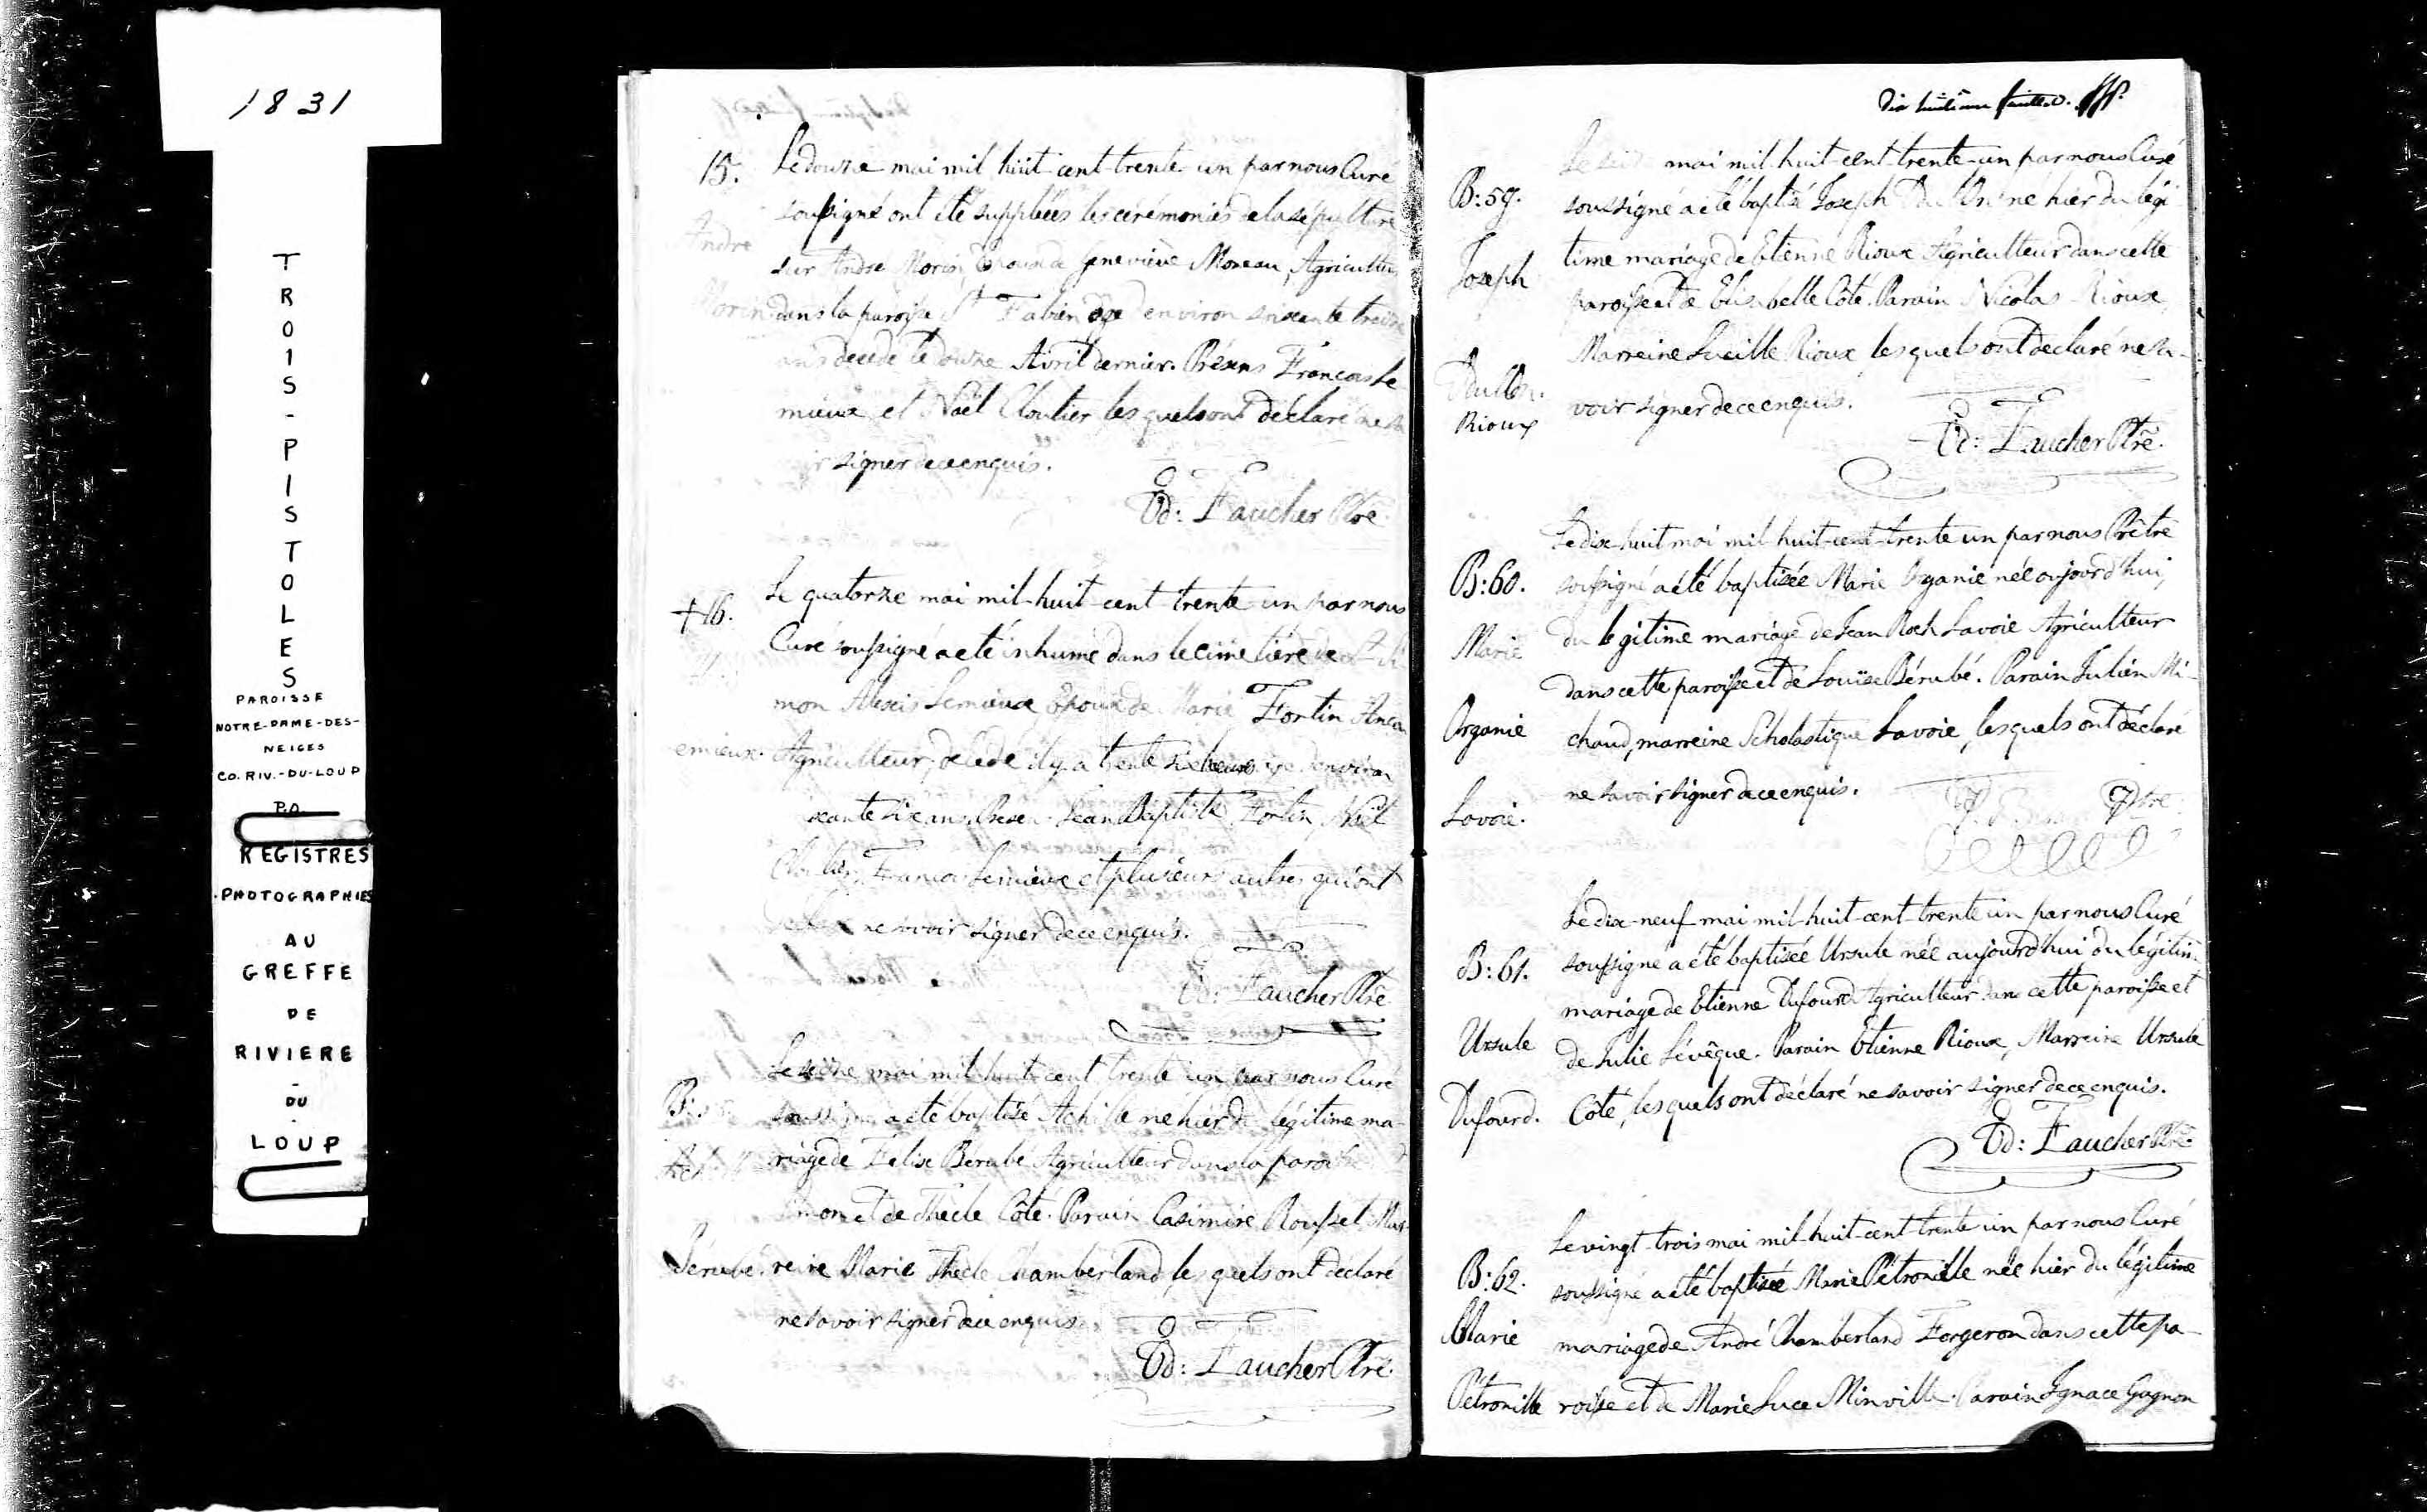 1831
TROIS-PISTOLES
PAROISSE
NOTRE-DAME-DES-
NEIGES
CO. RIV.-DU-LOUP
P.Q.
REGISTRES
PHOTOGRAPHIES
AU
GREFFE
DE
RIVIERE
-
DU
-
LOUP
15.
André
Morin
Le douze mai mil huit-cent-trente-un par nous Curé
soussigné ont été suppléées les cérémonies de la sépulture
sur André Morin, Epoux de Geneviève Moreau, Agriculteur
dans la paroisse St Fabien âgé d'environ soixante treize
ans décédé le douze Avril dernier. Présens François Le
mieux et Noël Cloutier lesquels ont déclaré ne sa
voir signer de ce enquis.
Ed: Faucher Ptre
+16.
emieux.
Le quatorze mai mil-huit-cent-trente-un par nous
Curé soussigné a été inhumé dans le cimetière de St Si
mon Alexis Lemieux Epoux de Marie Fortin
Agriculteur, décédé il y a trente six heures âgé d'environ
ixante six ans. Présens Jean Baptiste Fortin, Noël
Cloutier, François Lemieux et plusieurs autres qui ont
déclaré ne savoir signer de ce enquis.
Ed: Faucher Ptre
B:
Achille
Bérubé.
Le seize mai mil huit-cent-trente-un par nous Curé
soussigné a été baptisé Achille né hier du légitime ma-
riage de Felix Bérubé Agriculteur dans la paroisse
Simon et de Thècle Côté. Parain Casimire Roussel Mar-
reine Marie Thècle Chamberland lesquels ont déclaré
ne savoir signer de ce enquis.
Ed: Faucher Ptre.
Dix huitième feuillet.
B:59.
Joseph
Rioux
mai mil-huit-cent-trente-un par nous Curé
soussigné a été baptisé Joseph né hier du légi
time mariage de Etienne Rioux Agriculteur dans cette
paroisse et de Elisabelle Côté. Parain Nicolas Rioux,
Marreine Lucille Rioux, lesquels ont déclaré ne sa-
voir signer de ce enquis.
Ed: Faucher Ptre.
B:60.
Marie
Organie
Lavoie.
Le dix-huit mai mil-huit-cent-trente un par nous Prêtre
soussigné a été baptisée Marie Organie née aujourd'hui,
du légitime mariage de Jean Roch Lavoie Agriculteur
dans cette paroisse et de Louïse Bérubé. Parain Julien Mi-
chaud, marreine Scholastique Lavoie, lesquels ont déclaré
ne savoir signer de ce enquis.
Ptre
B:61.
Ursule
Dufourd.
Le dix-neuf mai mil-huit-cent-trente un par nous Curé
soussigné a été baptisée Ursule née aujourd'hui du légitim
mariage de Etienne Dufourd Agriculteur dans cette paroisse et
de Julie Lévêque. Parain Etienne Rioux, Marreine Ursule
Côté, lesquels ont déclaré ne savoir signer de ce enquis.
Ed: Faucher Ptre
B:62.
Marie
Pétronille
Le vingt-trois mai mil-huit-cent-trente un par nous Curé
soussigné a été baptisée Marie Pétronille née hier du légitime
mariage de André Chamberland Forgeron dans cette pa-
roisse et de Marie Luce Minville. Parain Ignace Gagnon